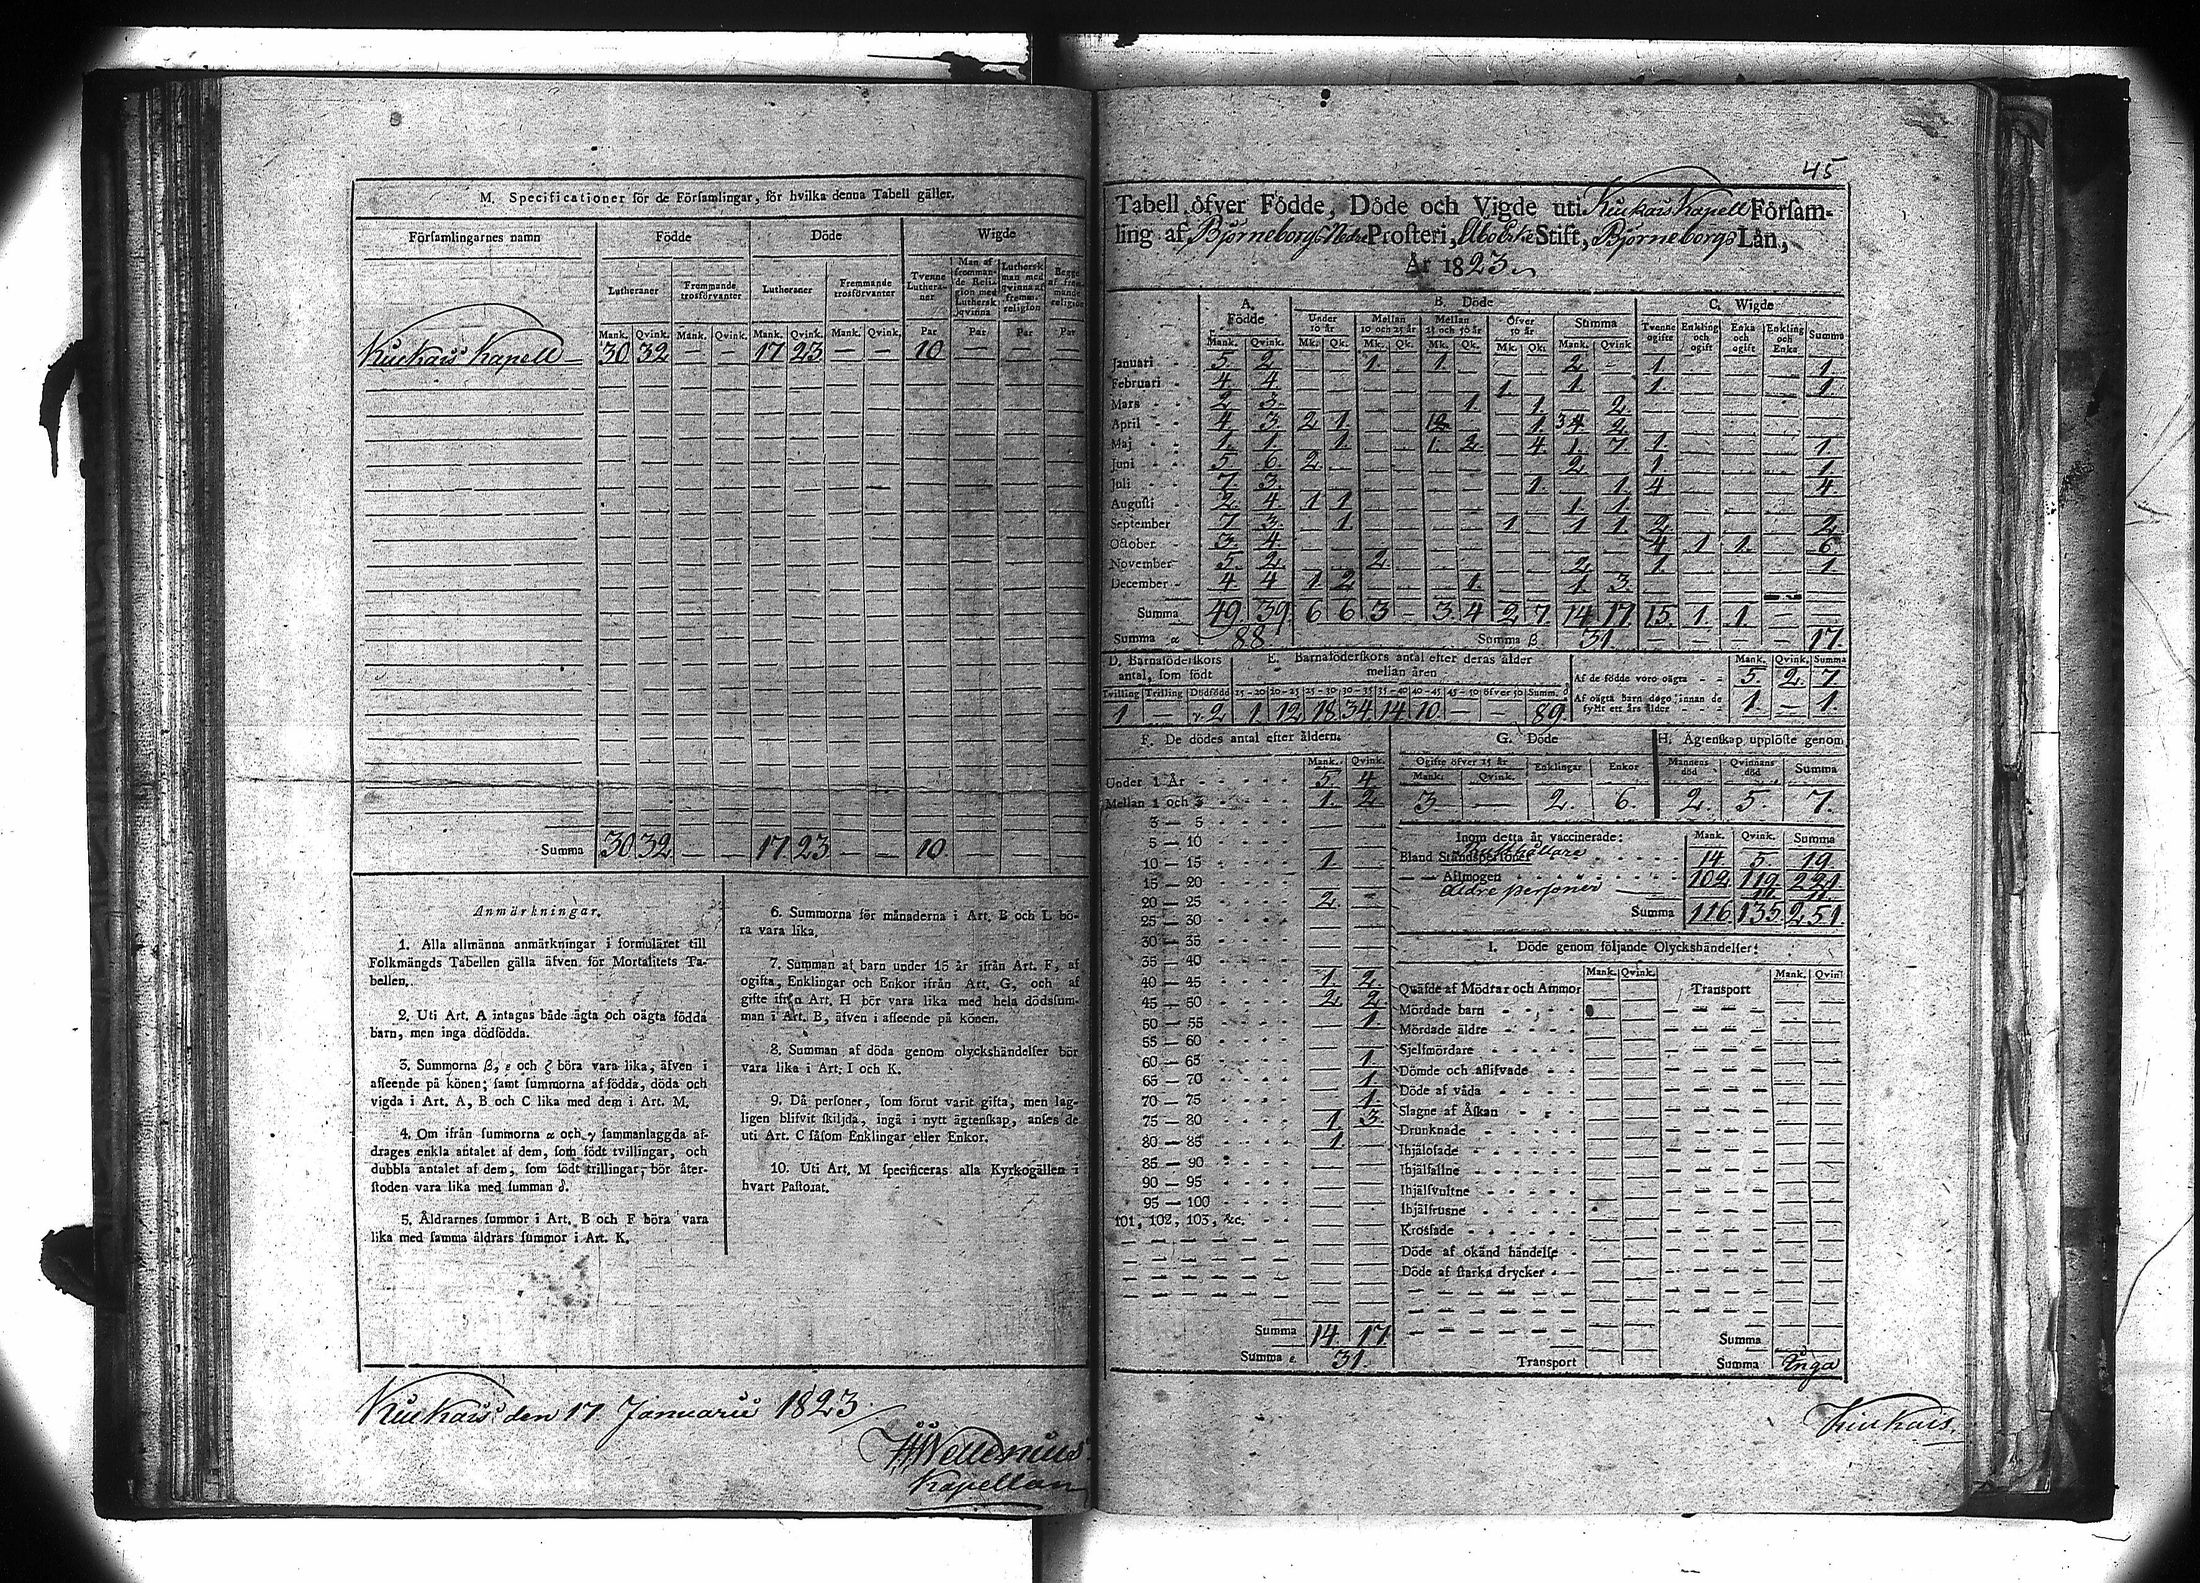 M. Specificationer för de Församlingar, för hvilka denna Tabell gäller.
Församlingarnes namn Födde Döde Wigde
Lutheraner Fremmande trosförvanter Lutheraner Fremmande trosförvanter Tvenne Lutheraner Man af fremmande Religion med Luthersk qvinna Luthersk man med qvinna af fremm. religion Begge af fremmande religion
Mank. Qvink. Mank. Qvink. Mank. Qvink. Mank. Qvink. Par Par Par Par
Kiukais Kapell 30 32 — — 17 23 — — 10 — — —
Summa 30 32 — — 17 23 — — 10 — — —
Anmärkningar.
1. Alla allmänna anmärkningar i formuläret till
Folkmängds Tabellen gälla äfven för Mortalitets Ta-
bellen.
2. Uti Art. A intagas både ägta och oägta födda
barn, men inga dödfödda.
3. Summorna β, ε och ζ böra vara lika, äfven i
afseende på könen; samt summorna af födda, döda och
vigda i Art. A, B och C lika med dem i Art. M.
4. Om ifrån summorna α och γ sammanlaggda af-
drages enkla antalet af dem, som födt tvillingar, och
dubbla antalet af dem, som födt trillingar, bör åter-
stoden vara lika med summan δ.
5. Åldrarnes summor i Art. B och F böra vara
lika med samma åldrars summor i Art. K.
6. Summorna för månaderna i Art. B och L bö-
ra vara lika.
7. Summan af barn under 15 år ifrån Art. F, af
ogifta, Enklingar och Enkor ifrån Art. G, och af
gifte ifrån Art. H bör vara lika med hela dödsfum-
man i Art. B, äfven i afseende på könen.
8. Summan af döda genom olyckshändelser bör
vara lika i Art. I och K.
9. Då personer, som förut varit gifta, men lag-
ligen blifvit skiljda, ingå i nytt ägtenskap, anses de
uti Art. C såsom Enklingar eller Enkor.
10. Uti Art. M specificeras alla Kyrkogällen i
hvart Pastorat.
Kiukais den 17 Januarii 1823.
Kapellan
45
Tabell öfver Födde, Döde och Vigde uti Kiukais Kapell Försam-
ling af Björneborgs Nedre Prosteri, Åbo Erke Stift, Björneborgs Län,
År 1823.
A. Födde B. Döde C. Wigde
Under 10 år Mellan 10 och 25 år Mellan 25 och 50 år Öfver 50 år Summa Tvenne ogifte Enkling och ogift Enka och ogift Enkling och Enka Summa
Mank. Qvink. Mk. Qk. Mk. Qk. Mk. Qk. Mk. Qk. Mank. Qvink
Januari 5. 2. — — 1. — 1. — — — 2. — 1. — — — 1.
Februari 4. 4. — — — — — — 1. — 1. — 1. — — — 1.
Mars 2. 3. — — — — — 1. — 1. — 2. — — — — —
April 4. 3. 2. 1. — — — — 1. 2. — — — — —
Maj 1. 1. — 1. — — 1. 2. — 4. 1. 7. 1. — — — 1.
Juni 5. 6. 2. — — — — — — — 2. — 1. — — — 1.
Juli 7. 3. — — — — — — — 1. — 1. 4. — — — 4.
Augusti 2. 4. 1 1 — — — — — — 1. 1. — — — — —
September 7. 3. — 1. — — — — 1 — 1. 1. 2. — — — 2.
October 3. 4. — — — — — — — — — — 4. 1. 1. — 6.
November 5. 2. — — 2. — — — — — 2. — 1. — — — 1.
December 4. 4 1. 2 — — — 1. — — 1. 3. — — — — —
Summa 49. 39. 6 6 3 — 3. 4 2 7. 14 17. 15. 1. 1. —
Summa α 88. Summa β 31. 17.
D. Barnaföderskors antal, som födt E. Barnaföderskors antal efter deras ålder mellan åren Mank. Qvink. Summa
Tvilling Trilling Dödfödd 15–20 20–25 25–30 30–35 35–40 40–45 45–50 öfver 50 Summ. δ
1 — γ. 2 1. 12. 18. 34. 14. 10. — — 89.
Af de födde voro oägta 5. 2. 7.
Af oägta Barn dogo innan de fyllt ett års ålder 1. — 1.
F. De dödes antal efter åldern. G. Döde H. Ägtenskap upplöste genom
Mank. Qvink. Ogifte öfver 15 år Enklingar Enkor Mannens död Qvinnans död Summa
Mank. Qvink.
3 — 2. 6. 2. 5. 7.
Under 1 År 5. 4
Mellan 1 och 3 1. 2
3 — 5
5 — 10
10 — 15 1. —
15 — 20
20 — 25 2. —
25 — 30
30 — 35
35 — 40
40 — 45 1. 2.
45 — 50 2. 2.
50 — 55 — 1.
55 — 60
60 — 65 — 1.
65 — 70 — 1.
70 — 75 — 1.
75 — 80 1. 3.
80 — 85 1. —
85 — 90
90 — 95
95 — 100
101, 102, 103, &c.
Summa 14. 17.
Summa ε. 31.
Inom detta år vaccinerade: Mank. Qvink. Summa
Bland Ståndspersoner 14 5. 19
— — Allmogen 102 119 221
äldre personer 11. 11.
Summa 116. 135. 251.
I. Döde genom följande Olyckshändelser:
Mank. Qvink. Mank. Qvin
Quäfde af Mödrar och Ammor Transport
Mördade barn
Mördade äldre
Sjelfmördare
Dömde och aflifvade
Döde af våda
Slagne af Åskan
Drunknade
Ihjälösade
Ihjälfallne
Ihjälsvultne
Ihjälfrusne
Krossade
Döde af okänd händelse
Döde af starka drycker
Summa
Transport Summa Inga
Kiukais.